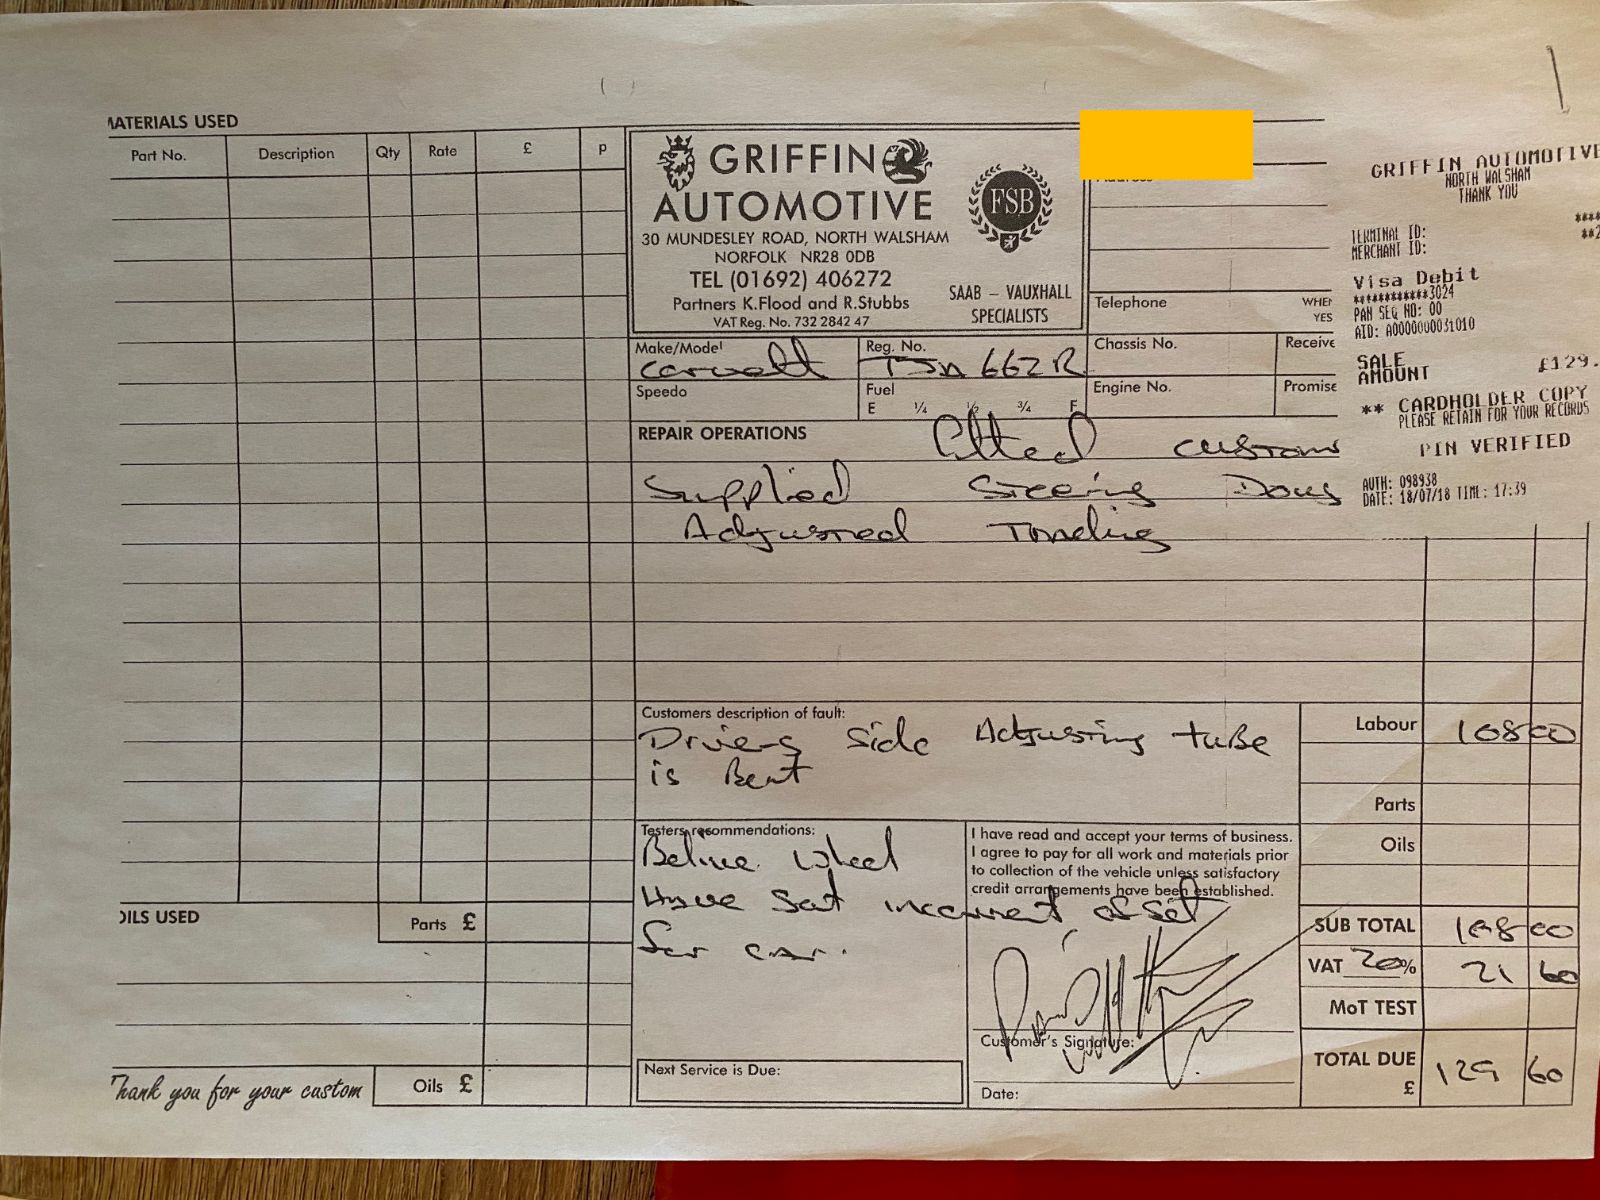 MATERIALS USED
Part No. Description Qty Rate £ P
GRIFFIN
AUTOMOTIVE
30 MUNDESLEY ROAD, NORTH WALSHAM
NORFOLK NR28 0DB
TEL (01692) 406272
Partners K.Flood and R.Stubbs
VAT Reg. No. 732 2842 47
FSB
SAAB – VAUXHALL
SPECIALISTS
Address
Telephone
WHEN
YES
Make/Model
Reg. No.
662R
Chassis No.
Receive
Speedo
Fuel
E ¼ ½ ¾ F
Engine No.
Promise
REPAIR OPERATIONS
fitted customs
Supplied Steering
Adjusted Tracking
GRIFFIN AUTOMOTIVE
NORTH WALSHAM
THANK YOU
TERMINAL ID: ****
MERCHANT ID: **2
Visa Debit
************3024
PAN SEQ NO: 00
AID: A0000000031010
SALE
AMOUNT £129.
** CARDHOLDER COPY
PLEASE RETAIN FOR YOUR RECORDS
PIN VERIFIED
AUTH: 098938
DATE: 18/07/18 TIME: 17:39
Customers description of fault:
Drivers side Adjusting tube
is Bent
Testers recommendations:
Belive wheel
incorrect ofset
for car.
I have read and accept your terms of business.
I agree to pay for all work and materials prior
to collection of the vehicle unless satisfactory
credit arrangements have been established.
Customer's Signature:
Date:
Next Service is Due:
Labour 108 00
Parts
Oils
SUB TOTAL 108 00
VAT 20% 21 60
MoT TEST
TOTAL DUE
£ 129 60
OILS USED
Parts £
Thank you for your custom
Oils £